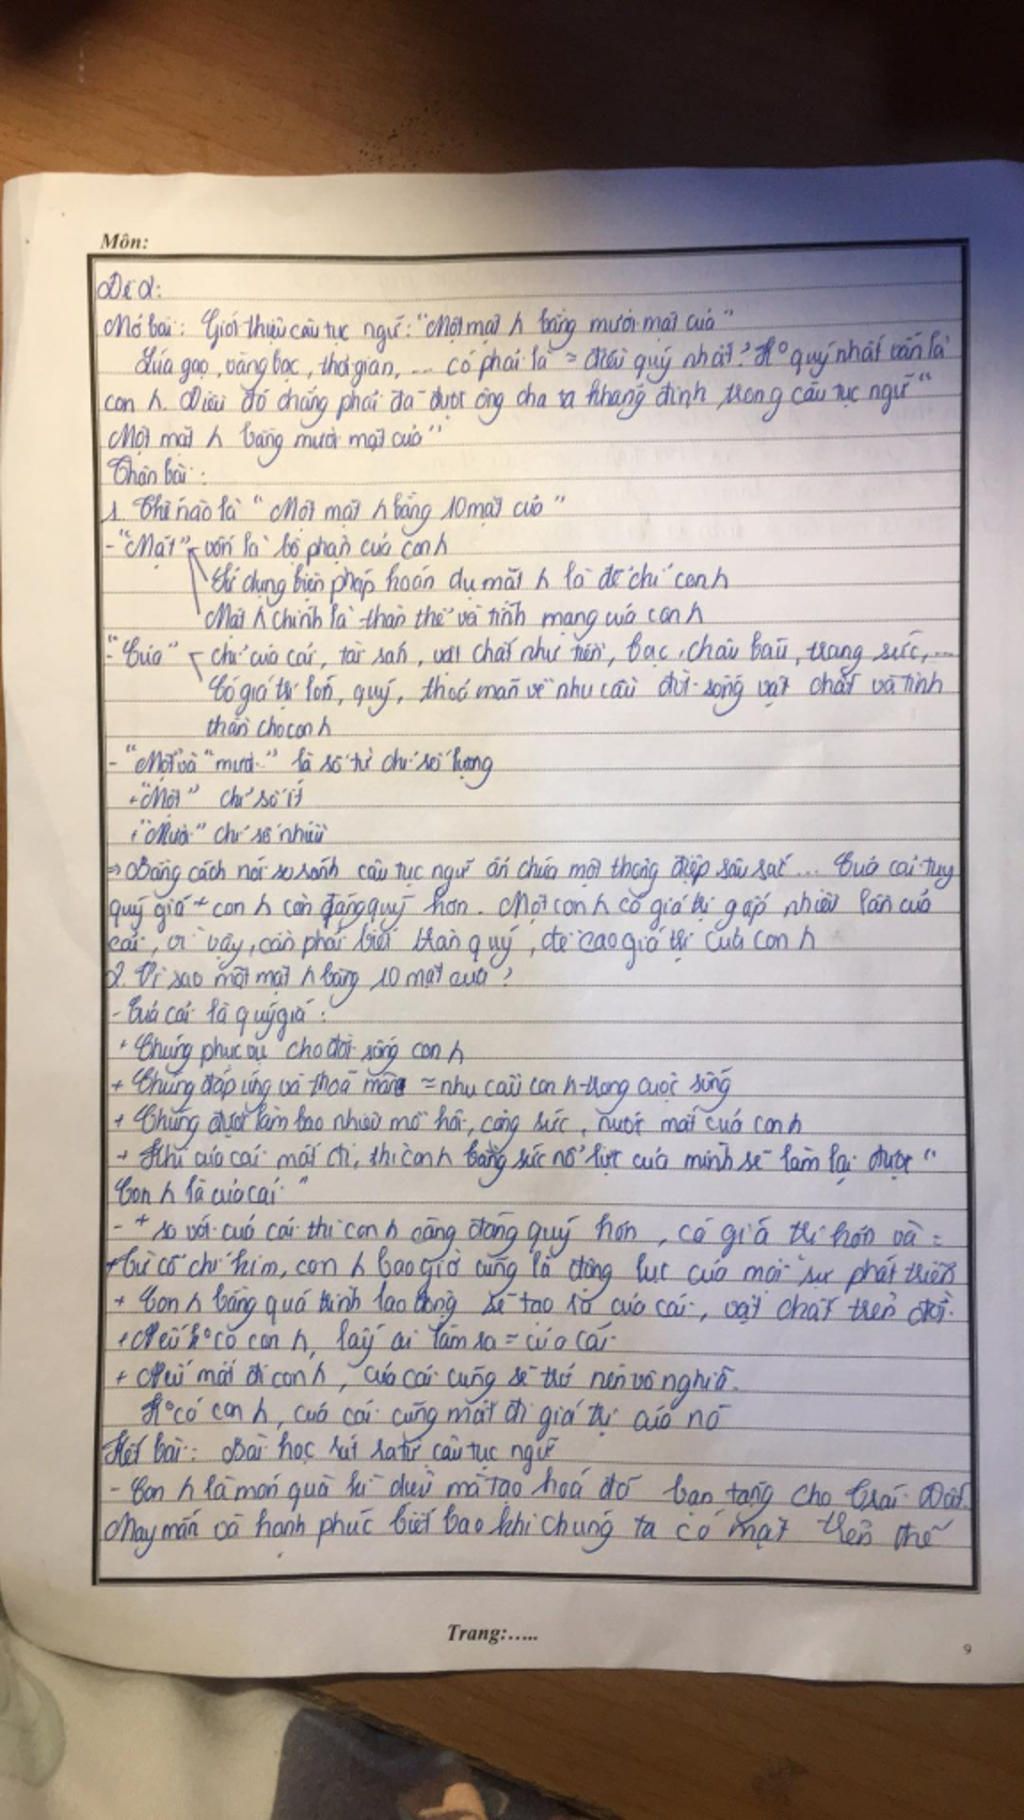 Môn:
Đề 2:
Mở bài: Giới thiệu câu tục ngữ: "Một mặt h bằng mười mặt của"
Lúa gạo, vàng bạc, thời gian, ... có phải là = điều quý nhất? K° quý nhất vẫn là
con h. Điều đó chẳng phải đã được ông cha ta khẳng định trong câu tục ngữ "
Một mặt h bằng mười mặt của"
Thân bài:
1. Thế nào là "Một mặt h bằng 10 mặt của"
- "Mặt" vốn là bộ phận của con h
Sử dụng biện pháp hoán dụ mặt h là để chỉ con h
Mặt h chính là thân thể và tính mạng của con h
- "Của" chỉ của cải, tài sản, vật chất như tiền, bạc, châu báu, trang sức,...
Có giá trị lớn, quý, thoả mãn về nhu cầu đời sống vật chất và tinh
thần cho con h
- "Một và "mười" là số từ chỉ số lượng
+ "Một" chỉ số ít
+ "Mười" chỉ số nhiều
=> Bằng cách nói so sánh câu tục ngữ ẩn chứa một thông điệp sâu sắc... Của cải tuy
quý giá + con h còn đáng quý hơn. Một con h có giá trị gấp nhiều lần của
cải, vì vậy, cần phải biết trân quý, đề cao giá trị của con h
2. Vì sao một mặt h bằng 10 mặt của?
- Của cải là quý giá:
+ Chúng phục vụ cho đời sống con h
+ Chúng đáp ứng và thoả mãn = nhu cầu con h trong cuộc sống
+ Chúng được làm bao nhiêu mồ hôi, công sức, nước mắt của con h
+ Khi của cải mất đi, thì con h bằng sức nỗ lực của mình sẽ làm lại được "
Con h là của cải"
- + so với của cải thì con h càng đáng quý hơn, có giá trị hơn và =
+ Từ cổ chí kim, con h bao giờ cũng là động lực của mọi sự phát triển
+ Con h bằng quá trình lao động sẽ tạo ra của cải, vật chất trên đời.
+ Nếu k° có con h, lấy ai làm ra = của cải
+ Nếu mất đi con h, của cải cũng sẽ trở nên vô nghĩa.
K° có con h, của cải cũng mất đi giá trị của nó
Kết bài: Bài học rút ra từ câu tục ngữ
- Con h là món quà kì diệu mà tạo hoá đã ban tặng cho Trái Đất.
May mắn và hạnh phúc biết bao khi chúng ta có mặt trên thế
Trang:.....
9